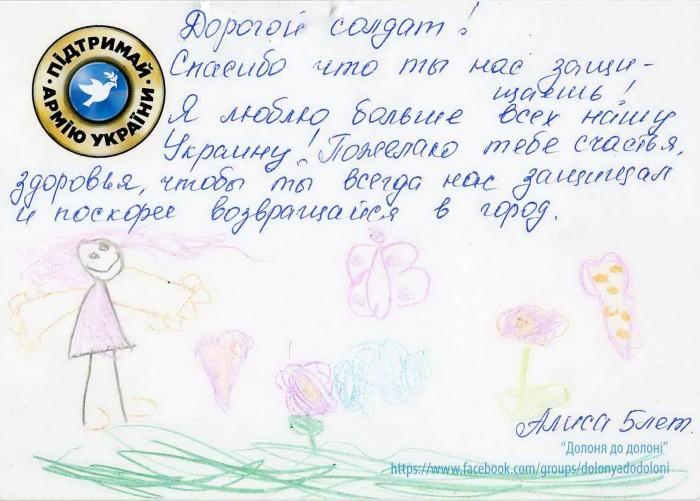 ПІДТРИМАЙ
АРМІЮ УКРАЇНИ
Дорогой солдат!
Спасибо что ты нас защи-
щаешь!
Я люблю больше всех нашу
Украину! Пожелаю тебе счастья,
здоровья, чтобы ты всегда нас защищал
и поскорее возвращайся в город.
Алиса 5лет.
"Долоня до долоні"
https://www.facebook.com/groups/dolonyadodoloni